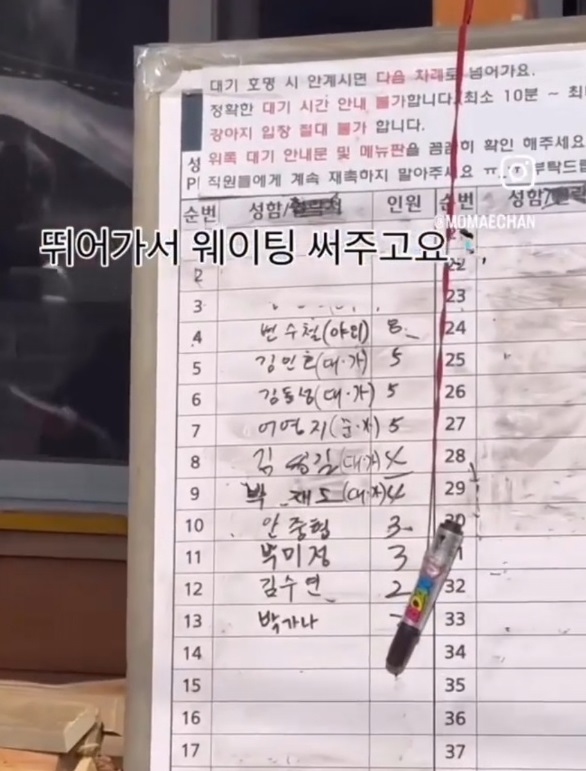 대기 호명 시 안계시면 다음 차례로 넘어가요.
정확한 대기 시간 안내 불가합니다.(최소 10분 ~ 최
강아지 입장 절대 불가 합니다.
위쪽 대기 안내문 및 메뉴판을 꼼꼼히 확인 해주세요
직원들에게 계속 재촉하지 말아주세요 ㅠ
순번 성함/ 인원 순번 성함/
@MOMAECHAN
뛰어가서 웨이팅 써주고요
2 22
3 23
4 변수철(야외) 8 24
5 김민호(대·가) 5 25
6 김동남(대·가) 5 26
7 어영지 5 27
8 김 (대·가) 4 28
9 박 재도(대·가) 4 29
10 안중형 3
11 박미정 3
12 김수연 2 32
13 박가나 33
14 34
15 35
16 36
17 37